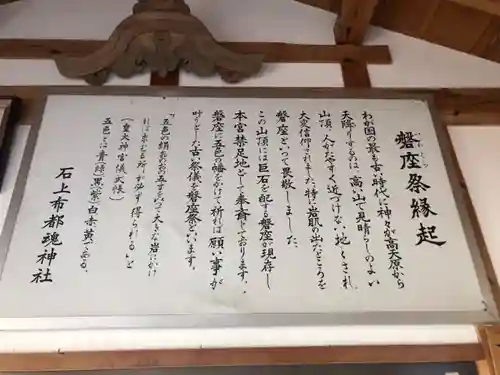 磐座祭縁起
わが国の最も古い時代に神々が高天原から
天降りするのは、高い山で見晴らしのよい
山頂、人がたやすく近づけない地とされ、
大変信仰されました。特に岩肌の出たところを
磐座といって畏敬しました。
この山頂には巨石を配する磐座が現存し
本宮禁足地として奉斎しております。
磐座に五色の幡をかけて祈れば願い事が
叶うとした古い祭儀を磐座祭といいます。
「五色の絹あおおみ玉を以って大きな岩にかけ
れば求むる所が必ず得られる」と
(皇大神宮儀式帳)
五色とは青(緑)黒(紫)白赤黄である。
石上布都魂神社